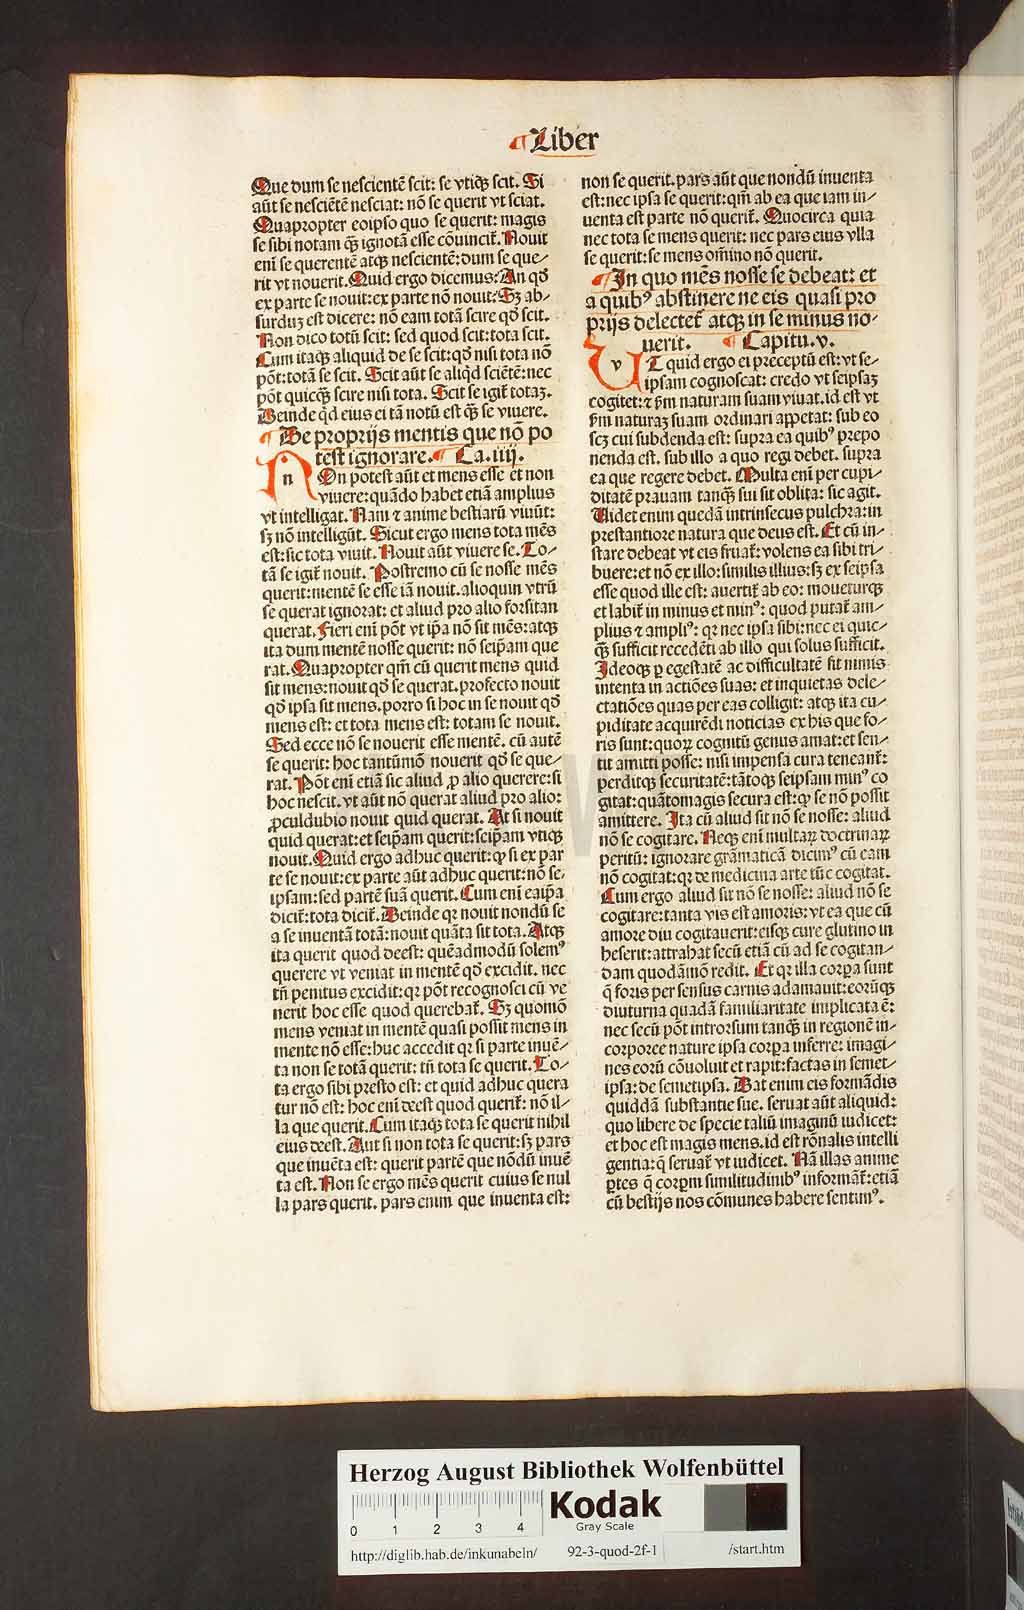 ¶Liber
Que dum se nescientē scit: se vtiqꝫ scit. Si
aūt se nesciētē nesciat: nō se querit vt sciat.
Quapropter eoipso quo se querit: magis
se sibi notam qꝫ ignotā esse cōuincit̄. Nouit
eni se querentē atqꝫ nescientē: dum se que/
rit vt nouerit. Quid ergo dicemus: An qd̄
ex parte se nouit: ex parte nō nouit: Sꝫ ab/
surduꝫ est dicere: nō eam totā scire qd̄ scit.
Non dico totū scit: sed quod scit: tota scit.
Cum itaqꝫ aliquid de se scit: qd̄ nisi tota nō
pōt: totā se scit. Scit aūt se aliqd̄ sciētē: nec
pōt quicqꝫ scire nisi tota. Scit se igit̄ totaꝫ.
Deinde qd̄ eius ei tā notū est qꝫ se viuere.
¶ De proprijs mentis que nō po
test ignorare. ¶ Ca. iiij.
n ON potest aūt et mens esse et non
viuere: quādo habet etiā amplius
vt intelligat. Nam ⁊ anime bestiarū viuūt:
sꝫ nō intelligūt. Sicut ergo mens tota mēs
est: sic tota viuit. Nouit aūt viuere se. To/
tā se igit̄ nouit. Postremo cū se nosse mēs
querit: mentē se esse iā nouit. alioquin vtrū
se querat ignorat: et aliud pro alio forsitan
querat. Fieri eni pōt vt ip̄a nō sit mēs: atqꝫ
ita dum mentē nosse querit: nō seip̄am que
rat. Quapropter qm̄ cū querit mens quid
sit mens: nouit qd̄ se querat. profecto nouit
qd̄ ipsa sit mens. porro si hoc in se nouit qd̄
mens est: et tota mens est: totam se nouit.
Sed ecce nō se nouerit esse mentē. cū autē
se querit: hoc tantūmō nouerit qd̄ se que/
rat. Pōt eni etiā sic aliud ꝓ alio querere: si
hoc nescit. vt aūt nō querat aliud pro alio:
ꝓculdubio nouit quid querat. At si nouit
quid querat: et seip̄am querit: seip̄am vtiqꝫ
nouit. Quid ergo adhuc querit: ꝙ si ex par
te se nouit: ex parte aūt adhuc querit: nō se/
ipsam: sed partē suā querit. Cum eni eaip̄a
dicit̄: tota dicit̄. Deinde qꝛ nouit nondū se
a se inuentā totā: nouit quāta sit tota. Atqꝫ
ita querit quod deest: quēadmodū solemꝰ
querere vt veniat in mentē qd̄ excidit. nec
tn̄ penitus excidit: qꝛ pōt recognosci cū ve
nerit hoc esse quod querebat̄. Sꝫ quomō
mens veniat in mentē quasi possit mens in
mente nō esse: huc accedit qꝛ si parte inuē/
ta non se totā querit: tn̄ tota se querit. To/
ta ergo sibi presto est: et quid adhuc quera
tur nō est: hoc eni deest quod querit̄: nō il/
la que querit. Cum itaqꝫ tota se querit nihil
eius deest. Aut si non tota se querit: sꝫ pars
que inuēta est: querit partē que nōdū inuē
ta est. Non se ergo mēs querit cuius se nul
la pars querit. pars enim que inuenta est:
non se querit. pars aūt que nondū inuenta
est: nec ipsa se querit: qm̄ ab ea que iam in/
uenta est parte nō querit̄. Quocirca quia
nec tota se mens querit: nec pars eius vlla
se querit: se mens om̄ino nō querit.
¶ In quo mēs nosse se debeat: et
a quibꝰ abstinere ne eis quasi pro
prijs delectet̄ atqꝫ in se minus no/
uerit. ¶ Capitu. v.
v T quid ergo ei preceptū est: vt se/
ipsam cognoscat: credo vt seipsaꝫ
cogitet: ⁊ ẜm naturam suam viuat. id est vt
ẜm naturaꝫ suam ordinari appetat: sub eo
scꝫ cui subdenda est: supra ea quibꝰ prepo
nenda est. sub illo a quo regi debet. supra
ea que regere debet. Multa eni per cupi/
ditatē prauam tanqꝫ sui sit oblita: sic agit.
Uidet enim quedā intrinsecus pulchra: in
prestantiore natura que deus est. Et cū in/
stare debeat vt eis fruat̄: volens ea sibi tri/
buere: et nō ex illo: similis illius: sꝫ ex seipsa
esse quod ille est: auertit̄ ab eo: moueturqꝫ
et labit̄ in minus et minꝰ: quod putat̄ am/
plius ⁊ ampliꝰ: qꝛ nec ipsa sibi: nec ei quic/
qꝫ sufficit recedēti ab illo qui solus sufficit.
Ideoqꝫ ꝑ egestatē ac difficultatē fit nimis
intenta in actiōes suas: et inquietas dele/
ctatiōes quas per eas colligit: atqꝫ ita cu/
piditate acquirēdi noticias ex his que fo/
ris sunt: quoꝝ cognitū genus amat: et sen/
tit amitti posse: nisi impensa cura teneant̄:
perditqꝫ securitatē: tātoqꝫ seipsam minꝰ co
gitat: quātomagis secura est: ꝙ se nō possit
amittere. Ita cū aliud sit nō se nosse: aliud
nō se cogitare. Neqꝫ eni multaꝝ doctrinaꝝ
peritū: ignorare grāmaticā dicimꝰ cū eam
nō cogitat: qꝛ de medicina arte tūc cogitat.
Cum ergo aliud sit nō se nosse: aliud nō se
cogitare: tanta vis est amoris: vt ea que cū
amore diu cogitauerit: eisqꝫ cure glutino in
heserit: attrahat secū etiā cū ad se cogitan/
dam quodāmō redit. Et qꝛ illa corꝑa sunt
q̄ foris per sensus carnis adamauit: eorūqꝫ
diuturna quadā familiaritate implicata ē:
nec secū pōt introrsum tanqꝫ in regionē in/
corporee nature ipsa corꝑa inferre: imagi/
nes eorū cōuoluit et rapit: factas in semet/
ipsa: de semetipsa. Dat enim eis formādis
quiddā substantie sue. seruat aūt aliquid:
quo libere de specie taliū imaginū iudicet:
et hoc est magis mens. id est rōnalis intelli
gentia: q̄ seruat̄ vt iudicet. Nā illas anime
ꝑtes q̄ corꝑm similitudinibꝰ informāt̄: etiā
cū bestijs nos cōmunes habere sentimꝰ.
Herzog August Bibliothek Wolfenbüttel
0 1 2 3 4
Kodak
Gray Scale
http://diglib.hab.de/inkunabeln/ 92-3-quod-2f-1 /start.htm